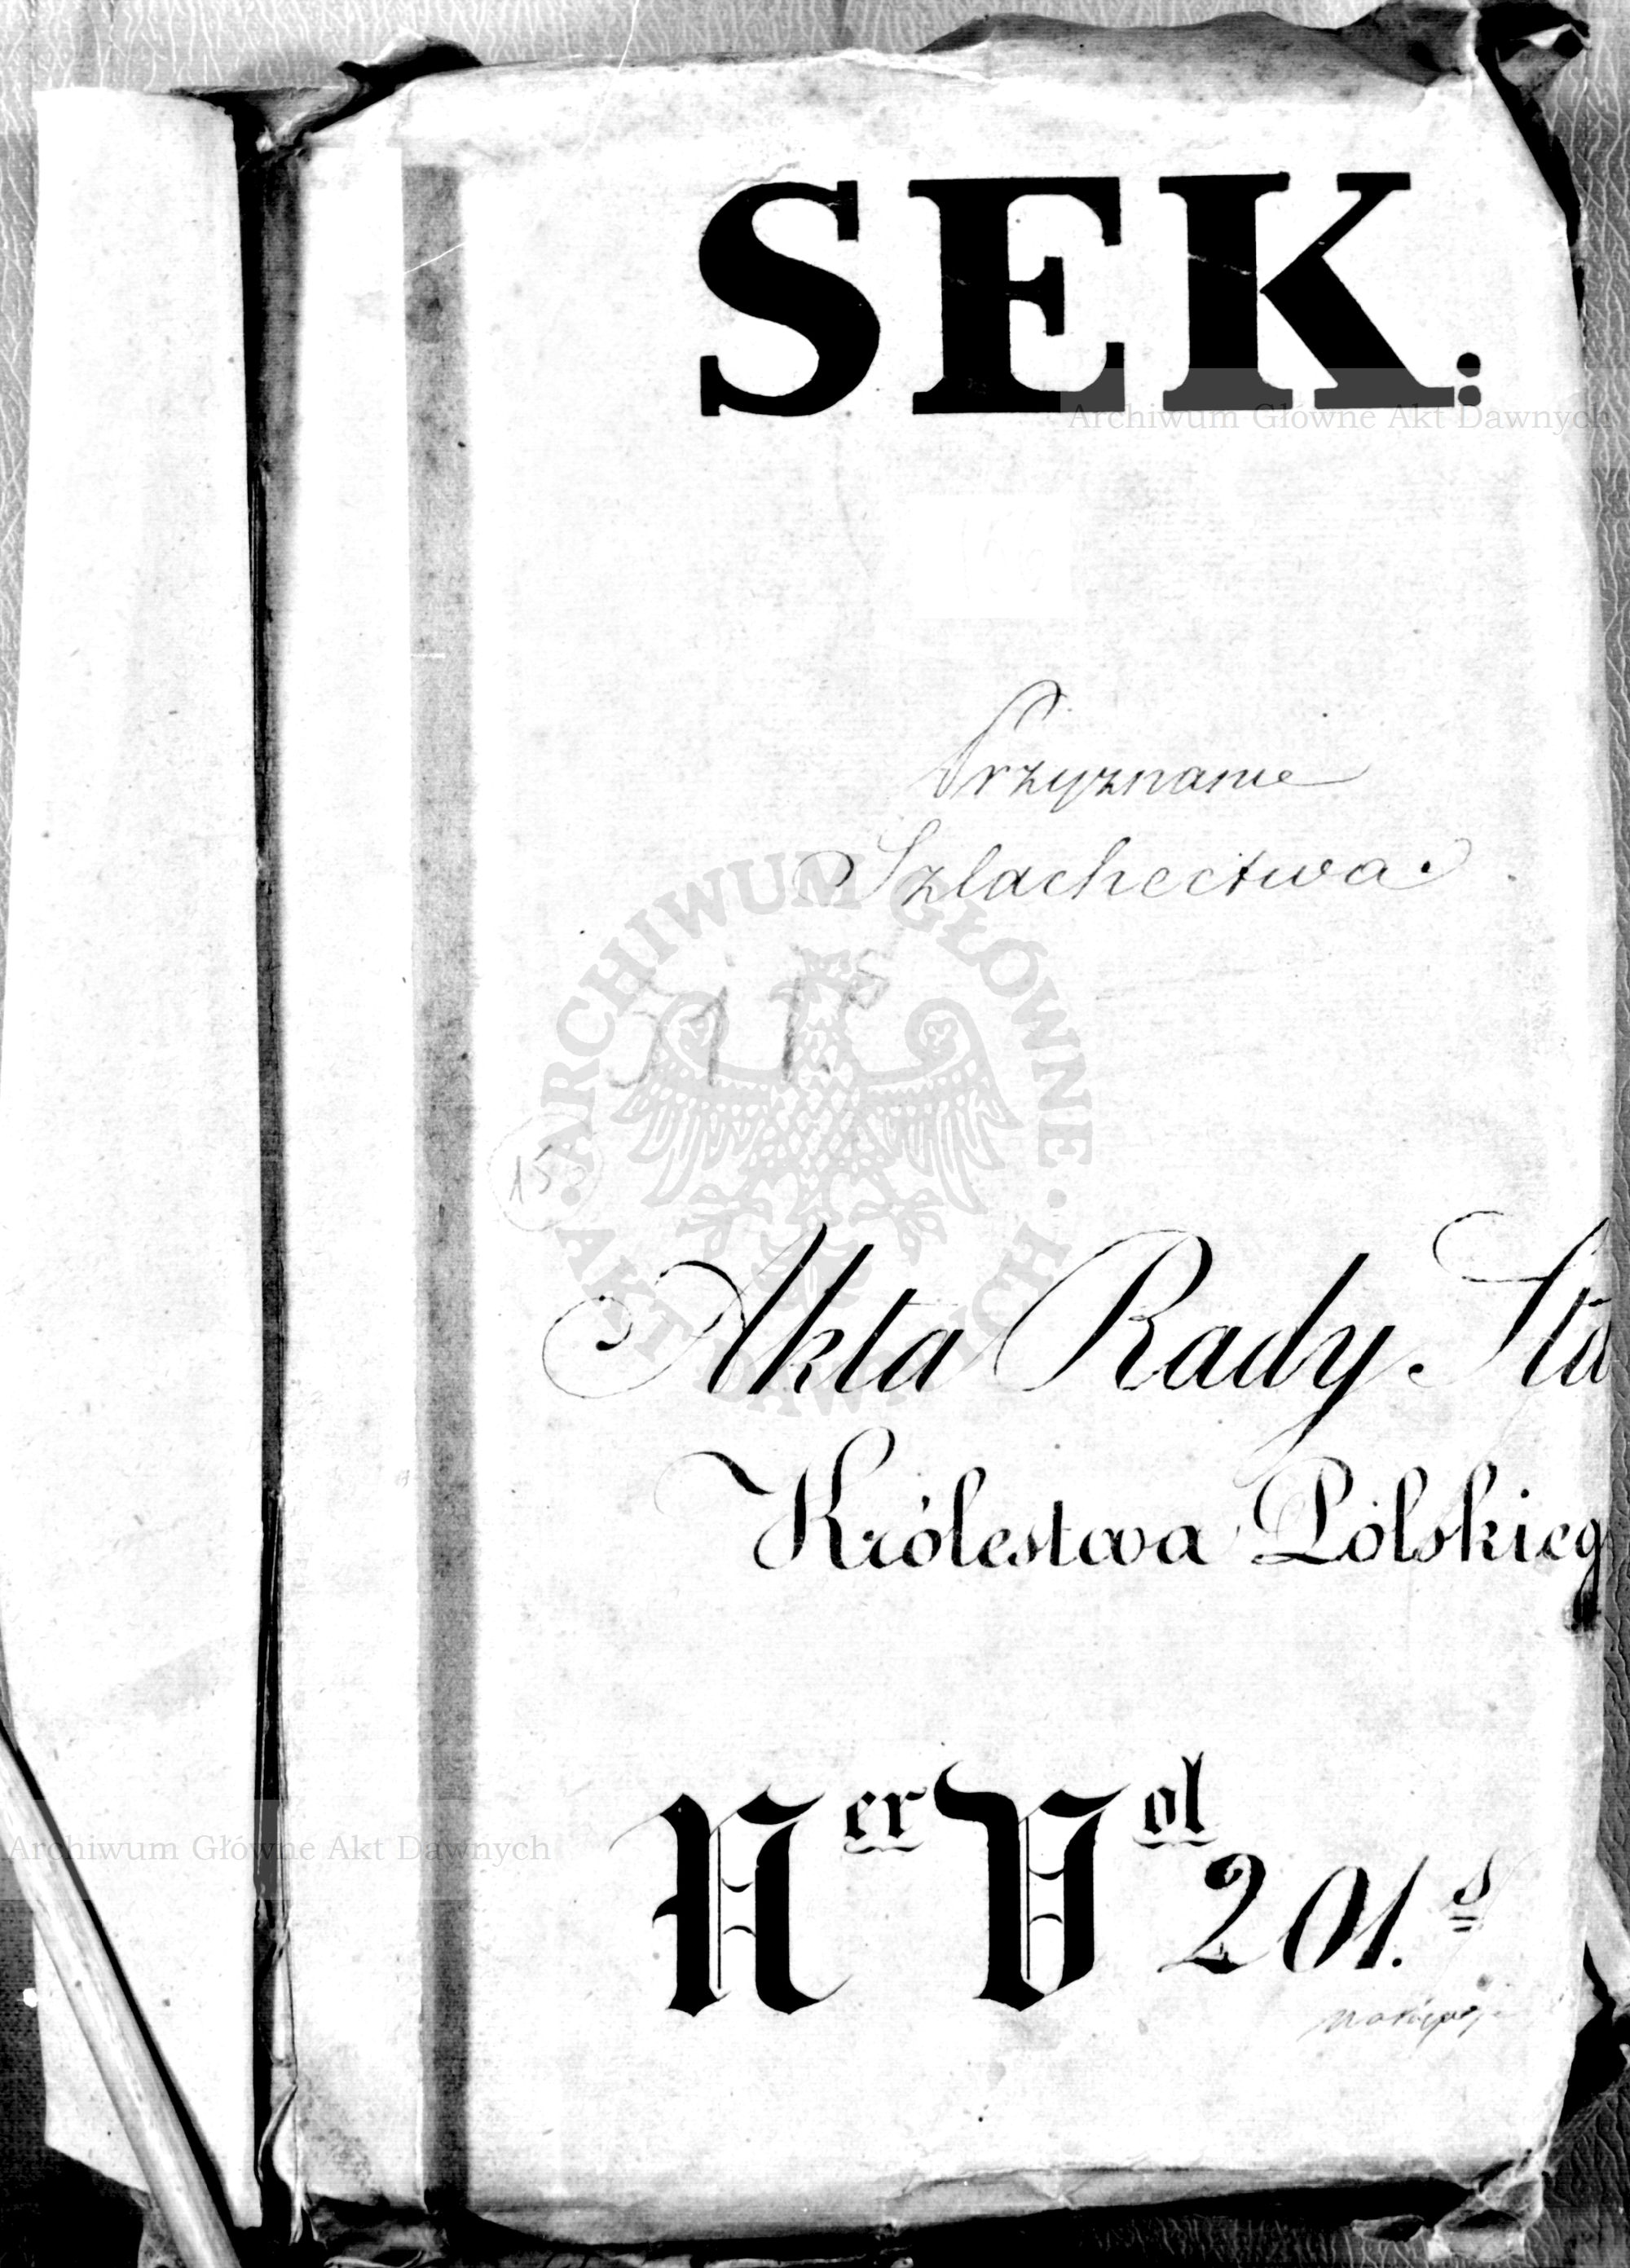 SEK:
Archiwum Główne Akt Dawnych
Przyznanie
Szlachectwa
ARCHIWUM GŁÓWNE AKT DAWNYCH
Akta Rady Sta
Królestwa Polskieg
Ner Vol 201.
Archiwum Główne Akt Dawnych